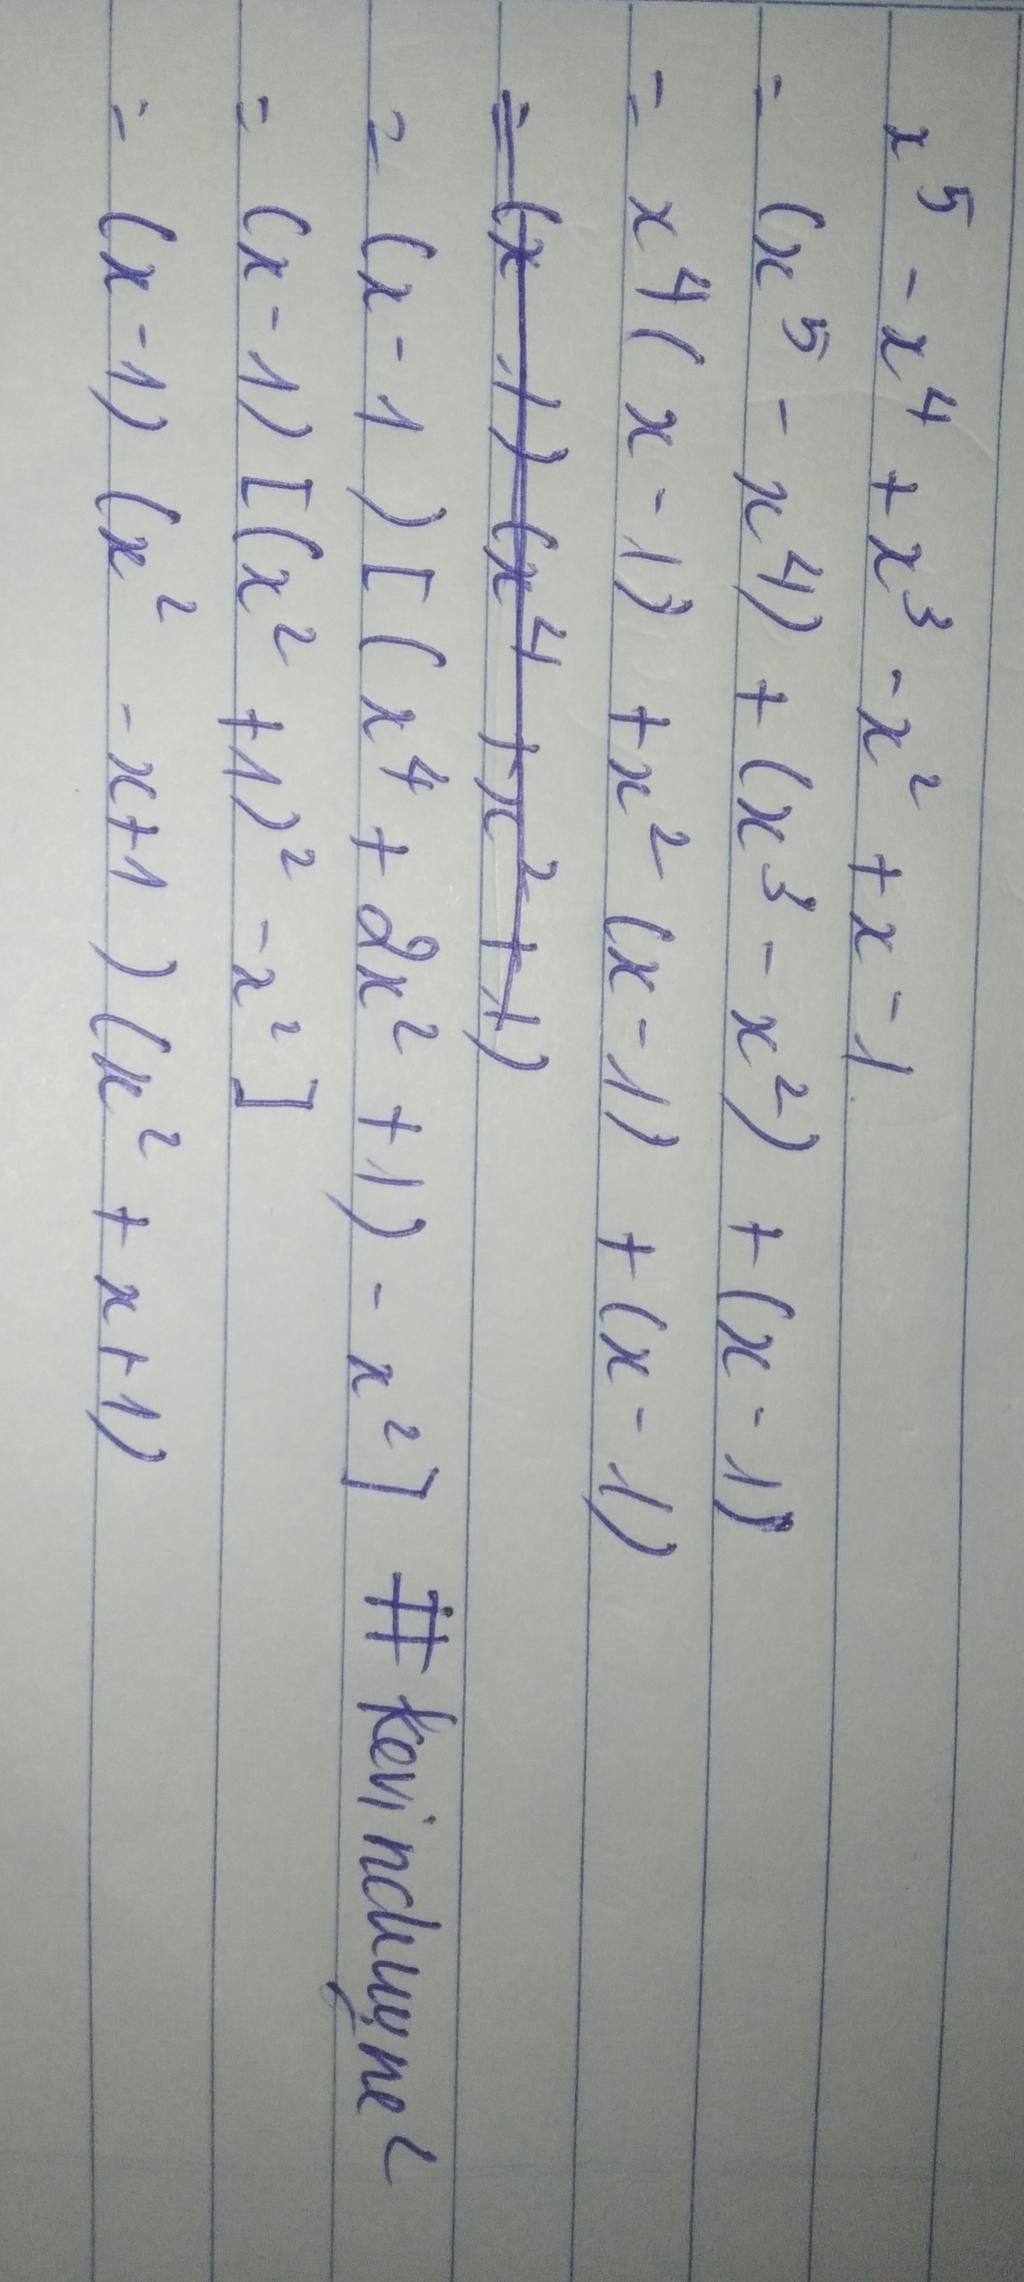 x⁵ - x⁴ + x³ - x² + x - 1
= (x⁵ - x⁴) + (x³ - x²) + (x - 1)
= x⁴(x - 1) + x²(x - 1) + (x - 1)
= (x - 1)(x⁴ + x² + 1)
= (x - 1)[(x⁴ + 2x² + 1) - x²] #kevinduyne
= (x - 1)[(x² + 1)² - x²]
= (x - 1)(x² - x + 1)(x² + x + 1)